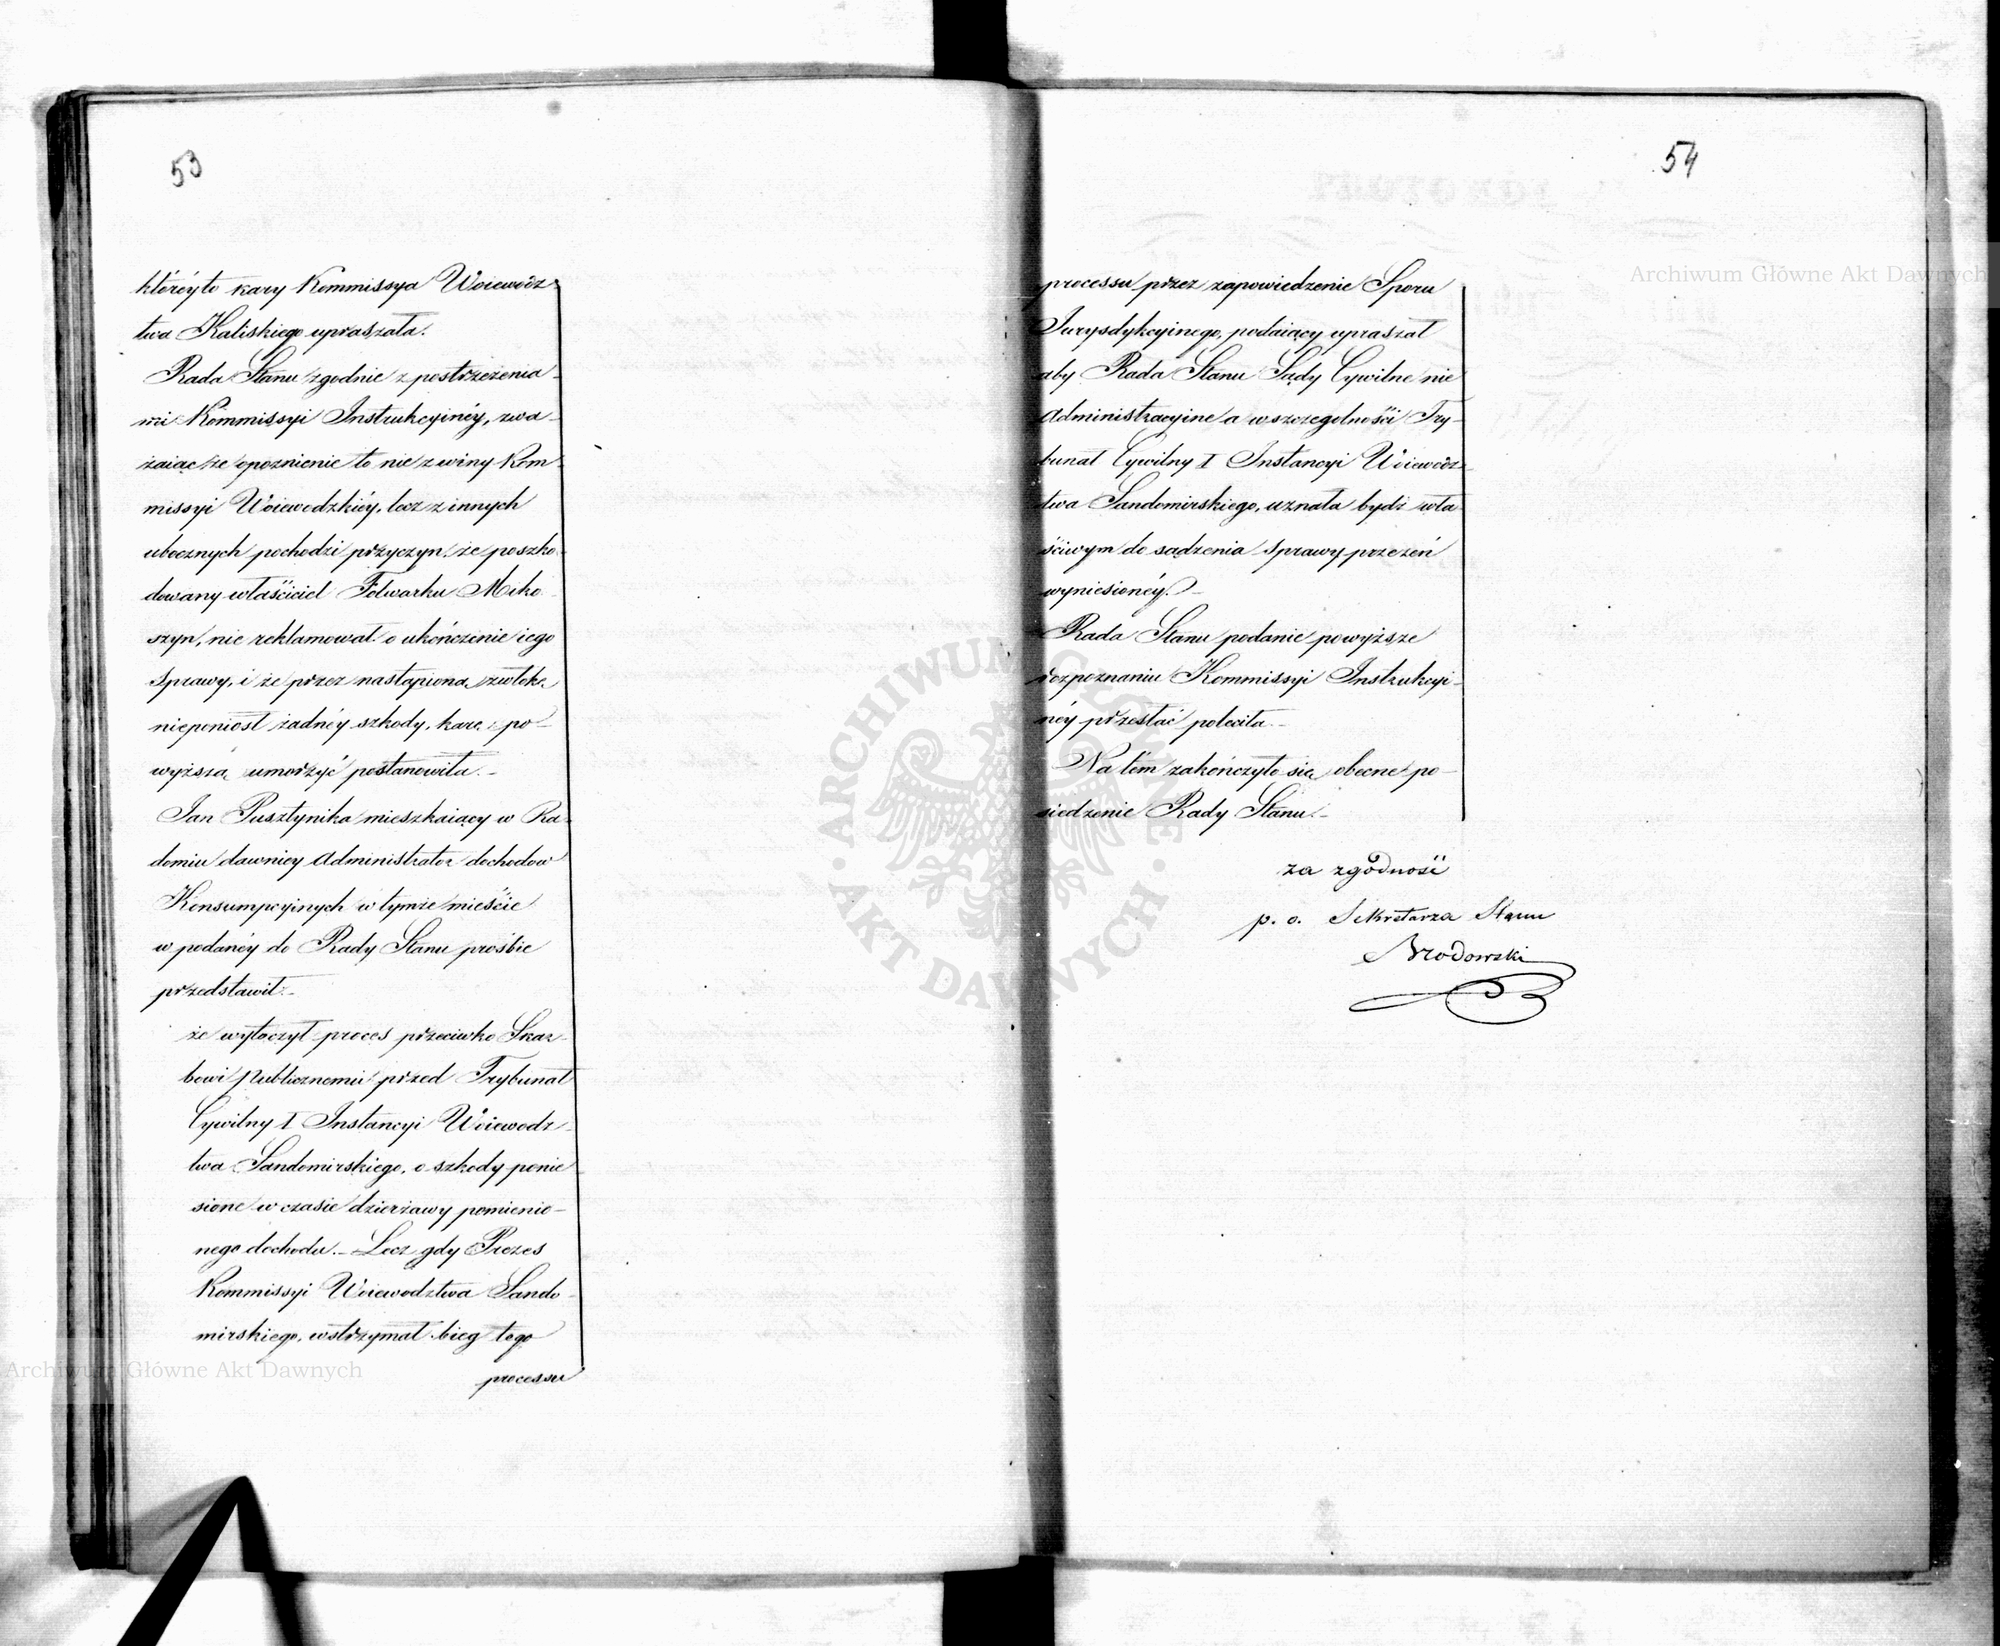 53
któréyto kary Kommissya Woiewódz-
twa Kaliskiego upraszała.
Rada Stanu zgodnie z postrzeżenia-
mi Kommissyi Instrukcyinéy, zwa-
żaiąc że opoznienie to nie z winy Kom-
missyi Woiewodzkiéy, lecz z innych
ubocznych pochodzi przyczyn, że poszko-
dowany właściciel Folwarku Miko-
szyn, nie reklamował o ukończenie iego
Sprawy, i że przez nastąpioną zwłokę
nieponiosł żadnéy szkody, karę po-
wyższą umorzyć postanowiła.
Jan Pusztynika mieszkaiący w Ra-
domiu dawniey Administrator dochodow
Konsumpcyinych w tymże mieście
w podanéy do Rady Stanu prośbie
przedstawił.
że wytoczył proces przeciwko Skar-
bowi Publicznemu przed Trybunał
Cywilny I Instancyi Woiewodz-
twa Sandomirskiego, o szkody ponie-
sione w czasie dzierżawy pomienio-
nego dochodu. Lecz gdy Prezes
Kommissyi Woiewodztwa Sando-
mirskiego, wstrzymał bieg tego
processu
54
processu przez zapowiedzenie Sporu
Jurysdykcyinego, podaiący upraszał
aby Rada Stanu Sądy Cywilne nie
Administracyine a w szczegolności Try-
bunał Cywilny I Instancyi Woiewodz-
twa Sandomirskiego, uznała bydź wła-
ściwym do sądzenia Sprawy przezeń
wyniesionéy.
Rada Stanu podanie powyższe
rozpoznaniu Kommissyi Instrukcyi-
néy przesłać poleciła.
Na tém zakończyło się obecne po-
siedzenie Rady Stanu.
za zgodność
p. o. Sekretarza Stanu
Brodowski
Archiwum Główne Akt Dawnych
Archiwum Główne Akt Dawnych
ARCHIWUM GŁÓWNE AKT DAWNYCH